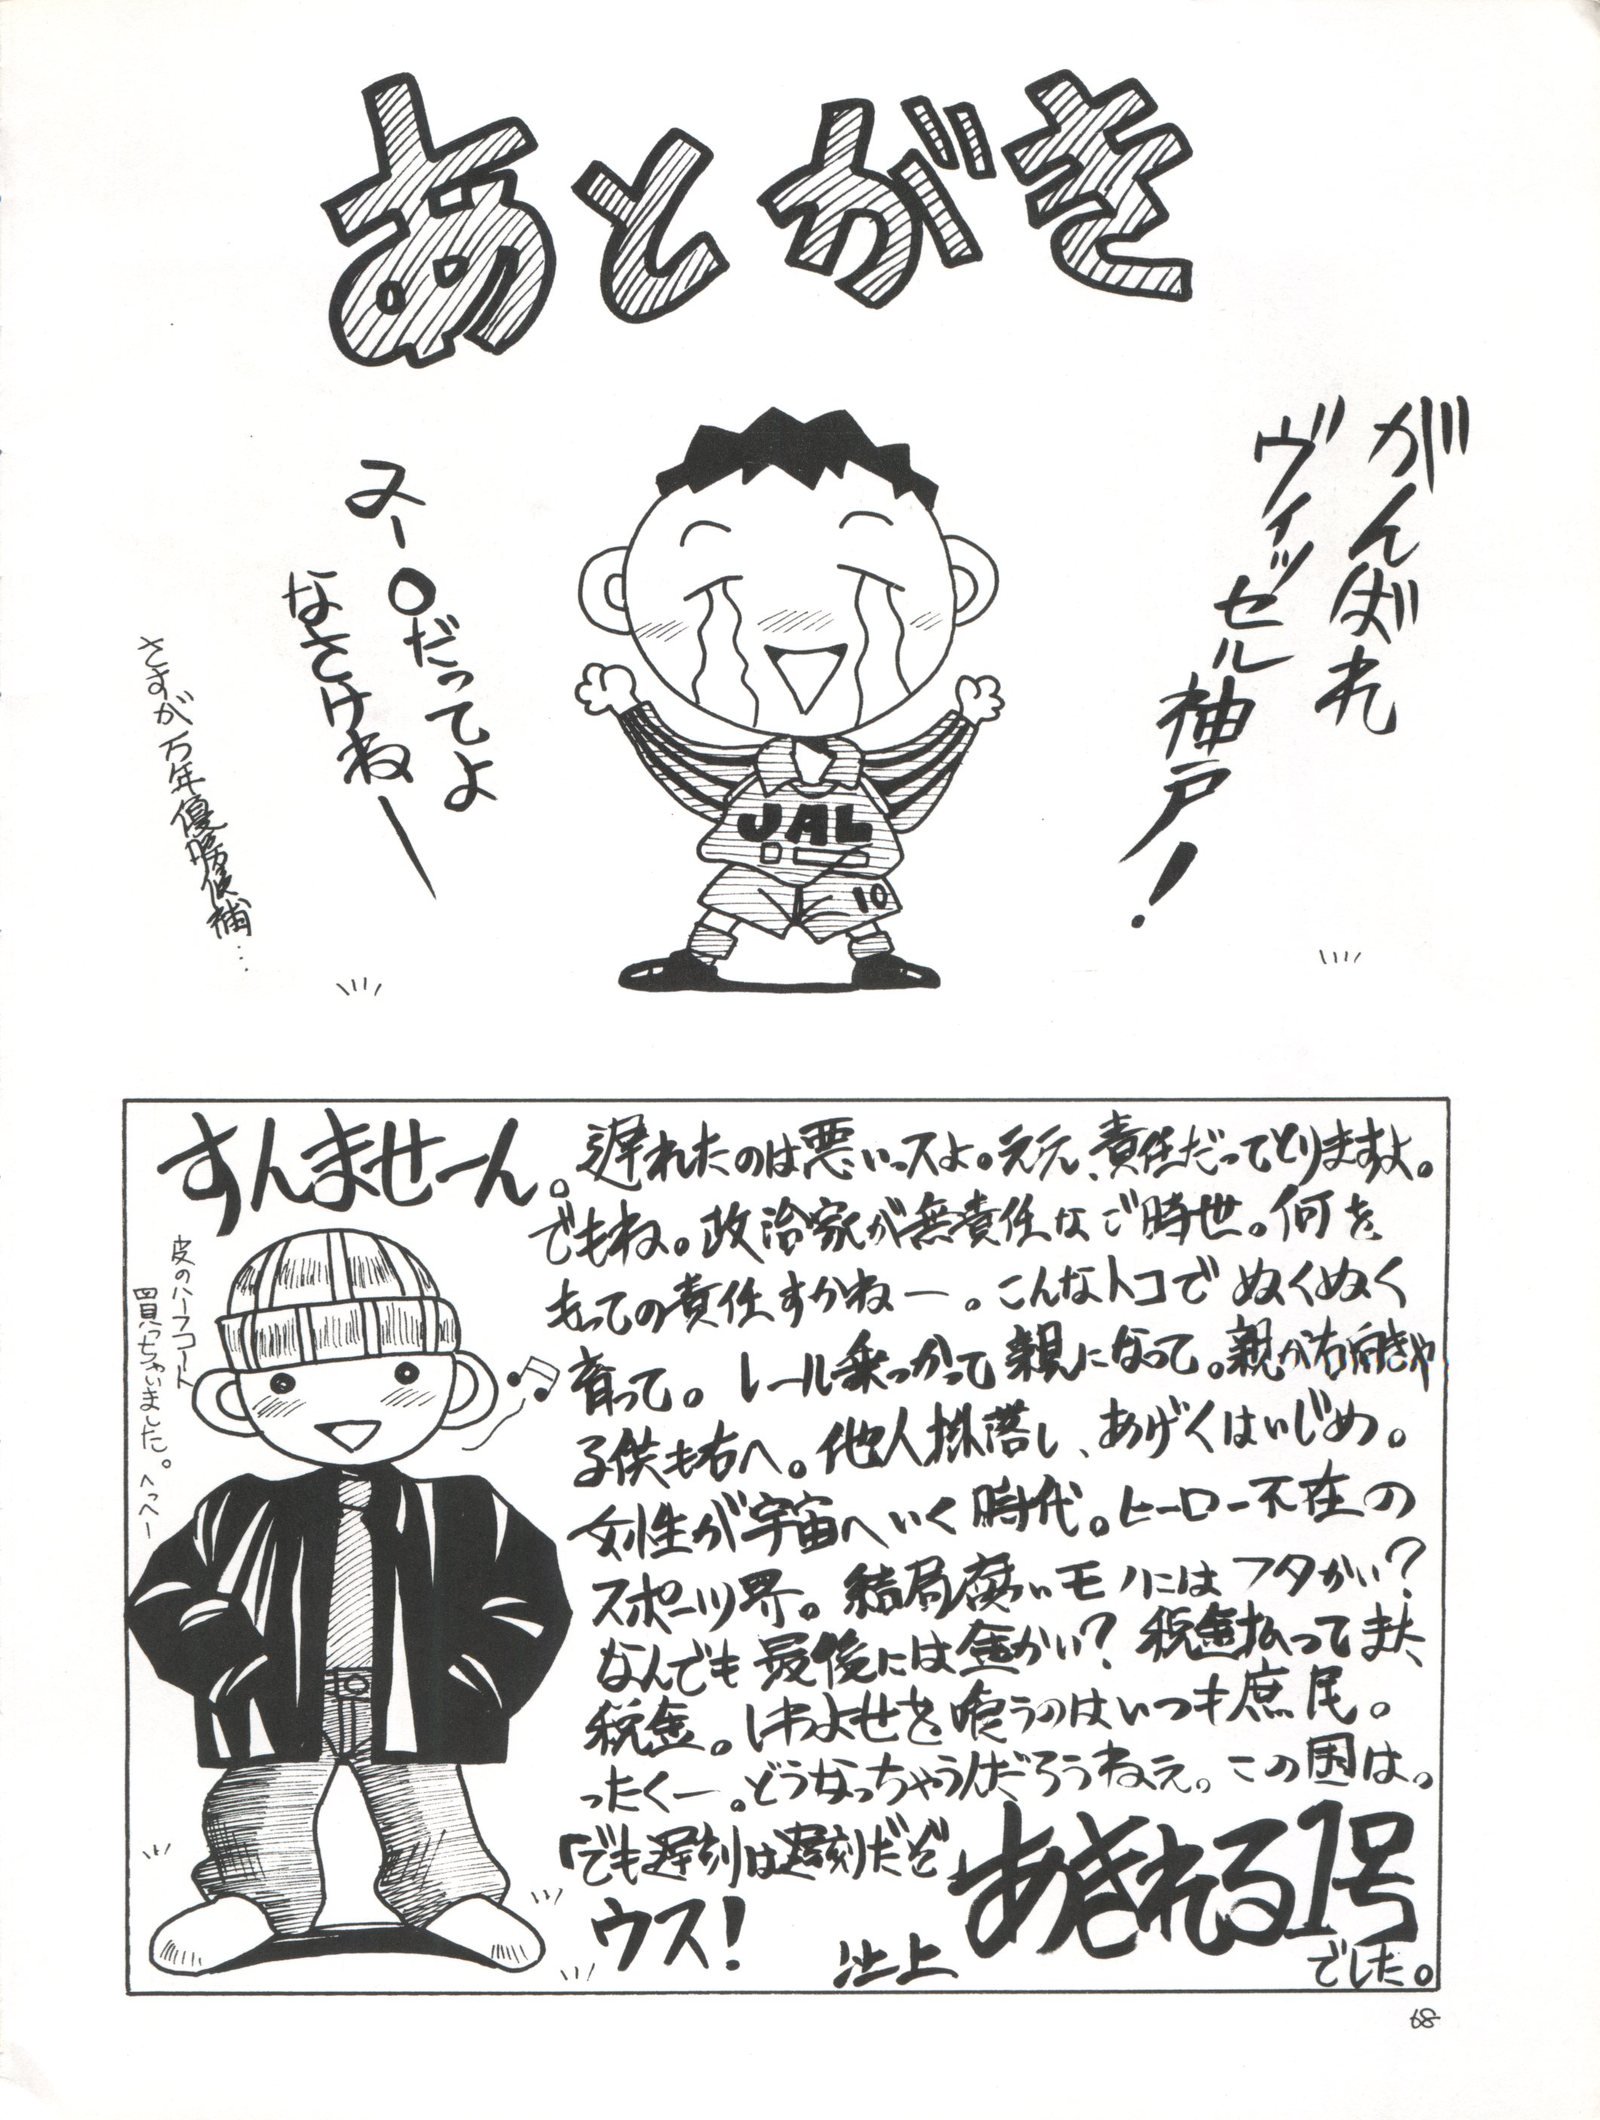 あとがき
がんばれ
ヴィッセル神戸!
ヌー〇だってよ
なさけねー
さすが万年優勝候補…
JAL
10
すんませーん。
遅れたのは悪いっスよ。ええ、責任だってとりますよ。
でもね。政治家が無責任なご時世。何を
もっての責任すかねー。こんなトコでぬくぬく
育って。レール乗っかって親になって。親が右向きゃ
子供も右へ。他人掛落し、あげくはいじめ。
女性が宇宙へいく時代。ヒーロー不在の
スポーツ界。結局腐いモノにはフタかい?
なんでも最後には金かい?税金払ってまた
税金。しわよせを喰うのはいつも庶民。
ったくー。どうなっちゃうんだろうねえ。この国は。
「でも遅刻は遅刻だぞ」
ウス!
あきれる1号
池上
でした。
皮のハーフコート
買っちゃいました。へっへー
68